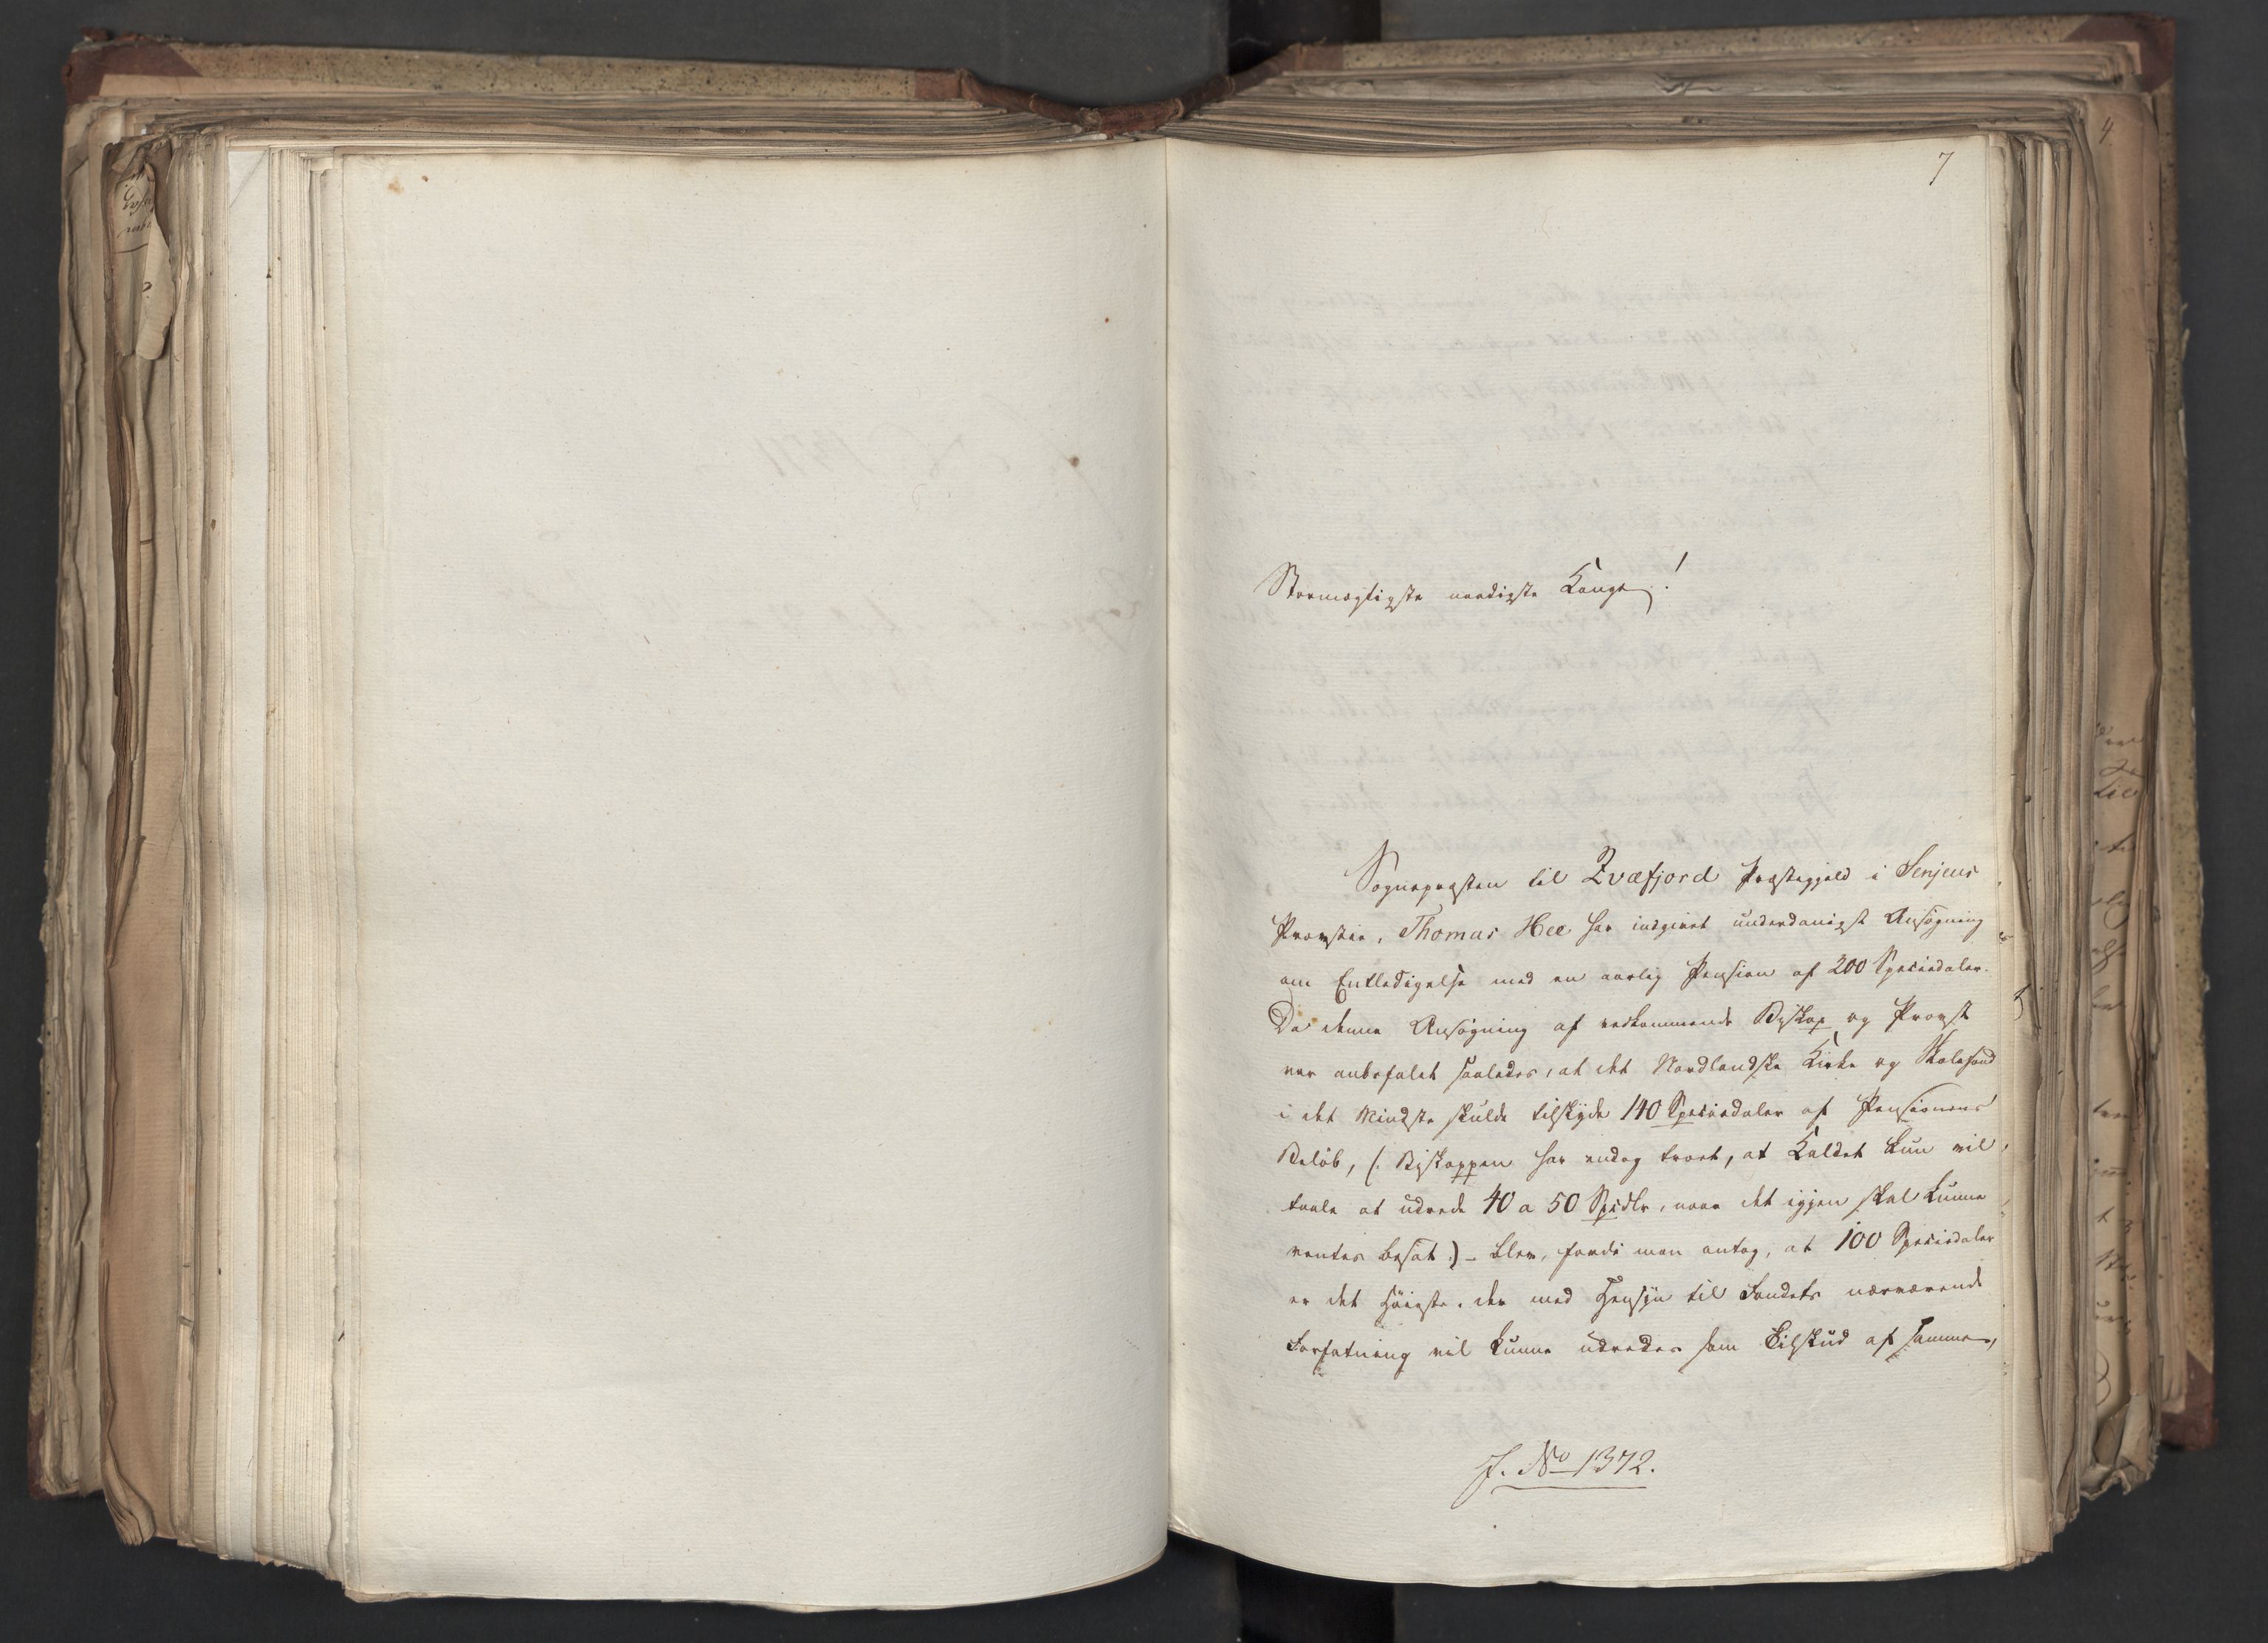 7
Stormægtigste naadigste Konge!
Sognepræsten til Qvæfjord Præstegjeld i Senjens
Provstie, Thomas Hee har indgivet underdanigst Ansøgning
om Entledigelse med en aarlig Pension af 200 Speciedaler.
Da denne Ansøgning af vedkommende Biskop og Provst
var anbefalet saaledes, at det Nordlandske Kirke og Skolefond
i det Mindste skulde tilskyde 140 Speciedaler af Pensionens
Beløb, (: Biskoppen har endog troet, at Kaldet kun vil
taale at udrede 40 a 50 Spdlr, naar det igjen skal kunne
ventes besat :) - blev, fordi man antog, at 100 Speciedaler
er det Høieste, der med Hensyn til Fondets nærværende
Forfatning vil kunne udredes som Tilskud af samme,
J. No 1372.